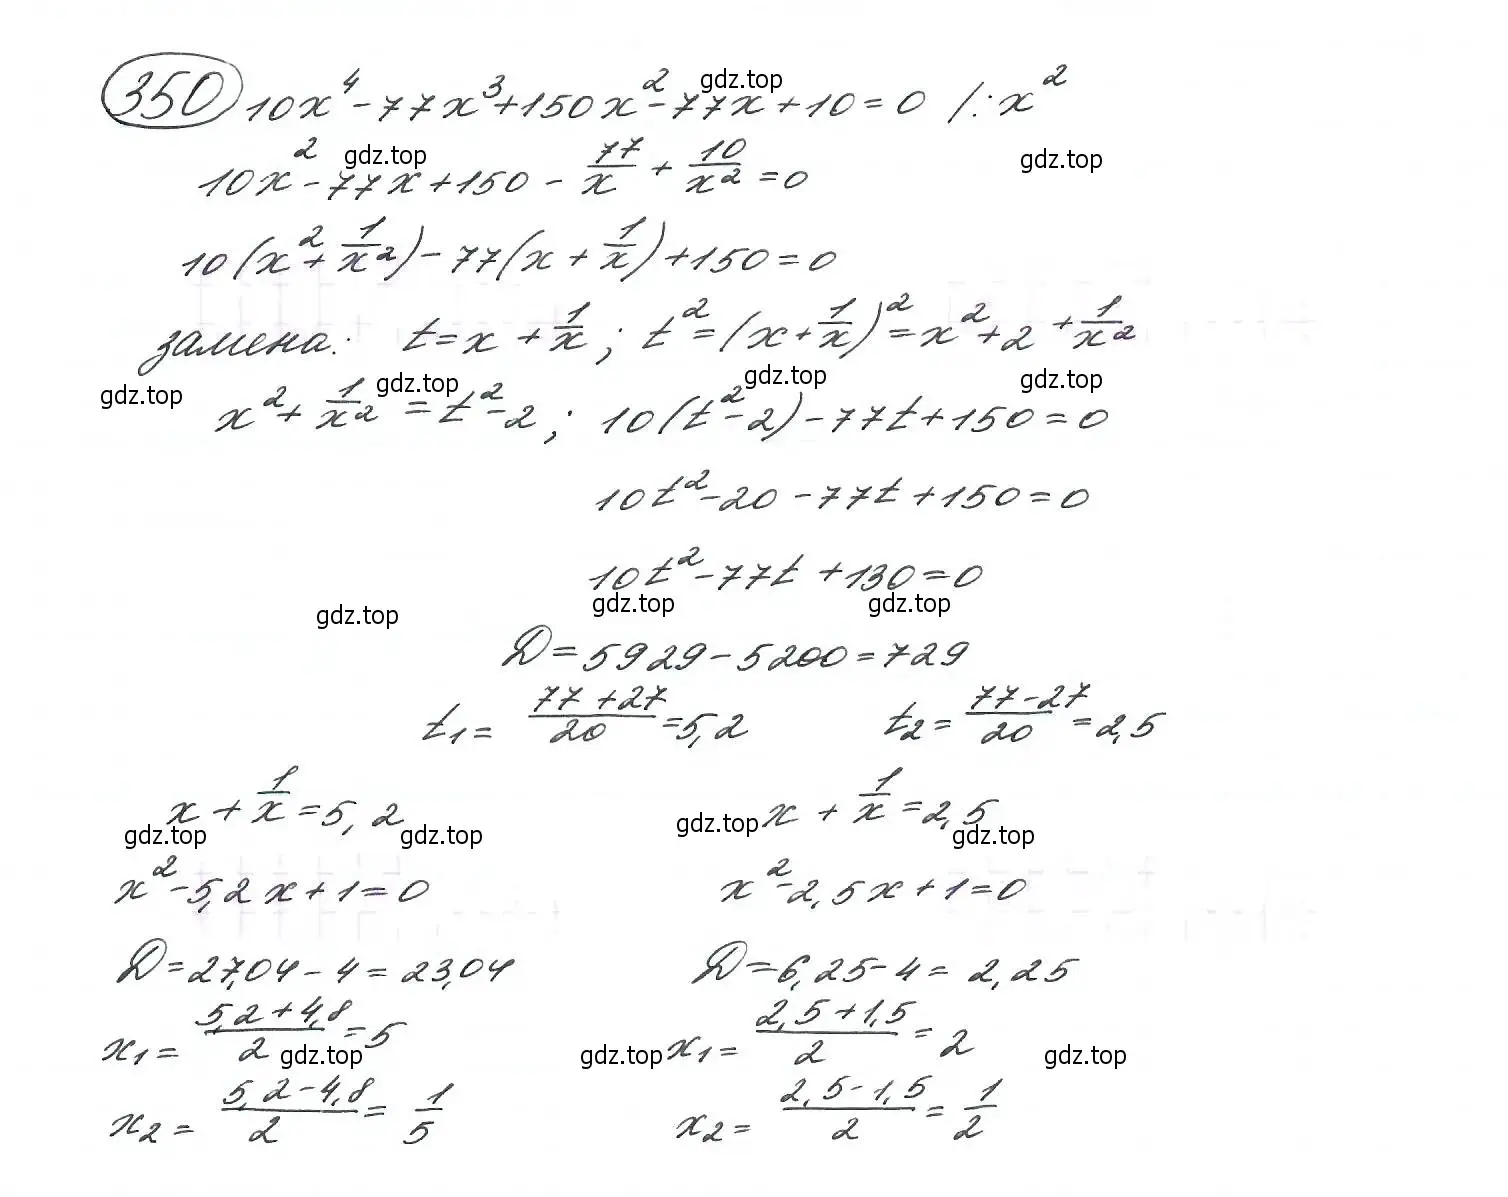 350 10x⁴ - 77x³ + 150x² - 77x + 10 = 0 /: x²
gdz.top
10x² - 77x + 150 - 77/x + 10/x² = 0
gdz.top gdz.top
10(x² + 1/x²) - 77(x + 1/x) + 150 = 0
замена: t = x + 1/x ; t² = (x + 1/x)² = x² + 2 + 1/x²
gdz.top gdz.top gdz.top gdz.top
x² + 1/x² = t² - 2 ; 10(t² - 2) - 77t + 150 = 0
10t² - 20 - 77t + 150 = 0
10t² - 77t + 130 = 0
gdz.top gdz.top gdz.top
D = 5929 - 5200 = 729
t₁ = (77 + 27)/20 = 5,2 t₂ = (77 - 27)/20 = 2,5
x + 1/x = 5,2 x + 1/x = 2,5
gdz.top gdz.top gdz.top gdz.top
x² - 5,2x + 1 = 0 x² - 2,5x + 1 = 0
D = 27,04 - 4 = 23,04 D = 6,25 - 4 = 2,25
x₁ = (5,2 + 4,8)/2 = 5 x₁ = (2,5 + 1,5)/2 = 2
gdz.top gdz.top gdz.top
x₂ = (5,2 - 4,8)/2 = 1/5 x₂ = (2,5 - 1,5)/2 = 1/2